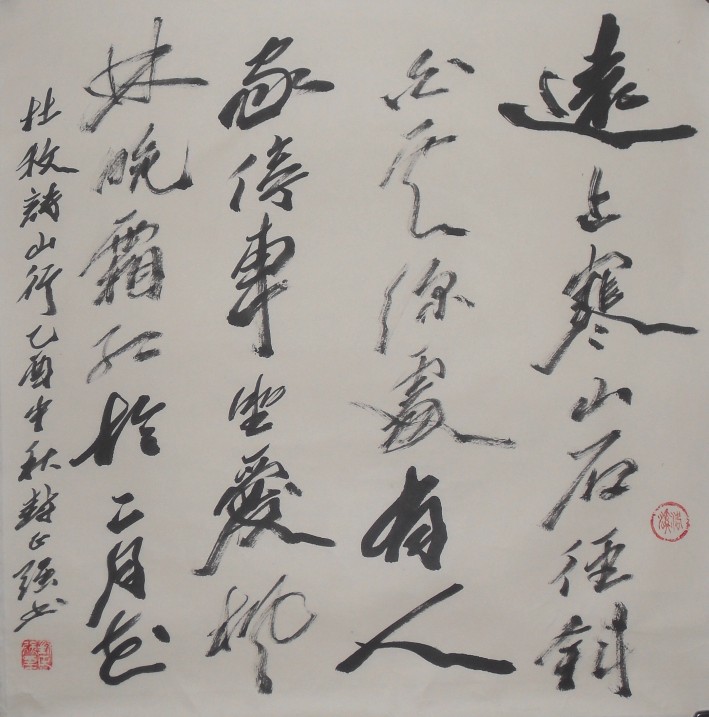 遠上寒山石徑斜
白雲深處有人
家停車坐愛楓
林晚霜紅於二月花
杜牧詩山行乙酉中秋正强书